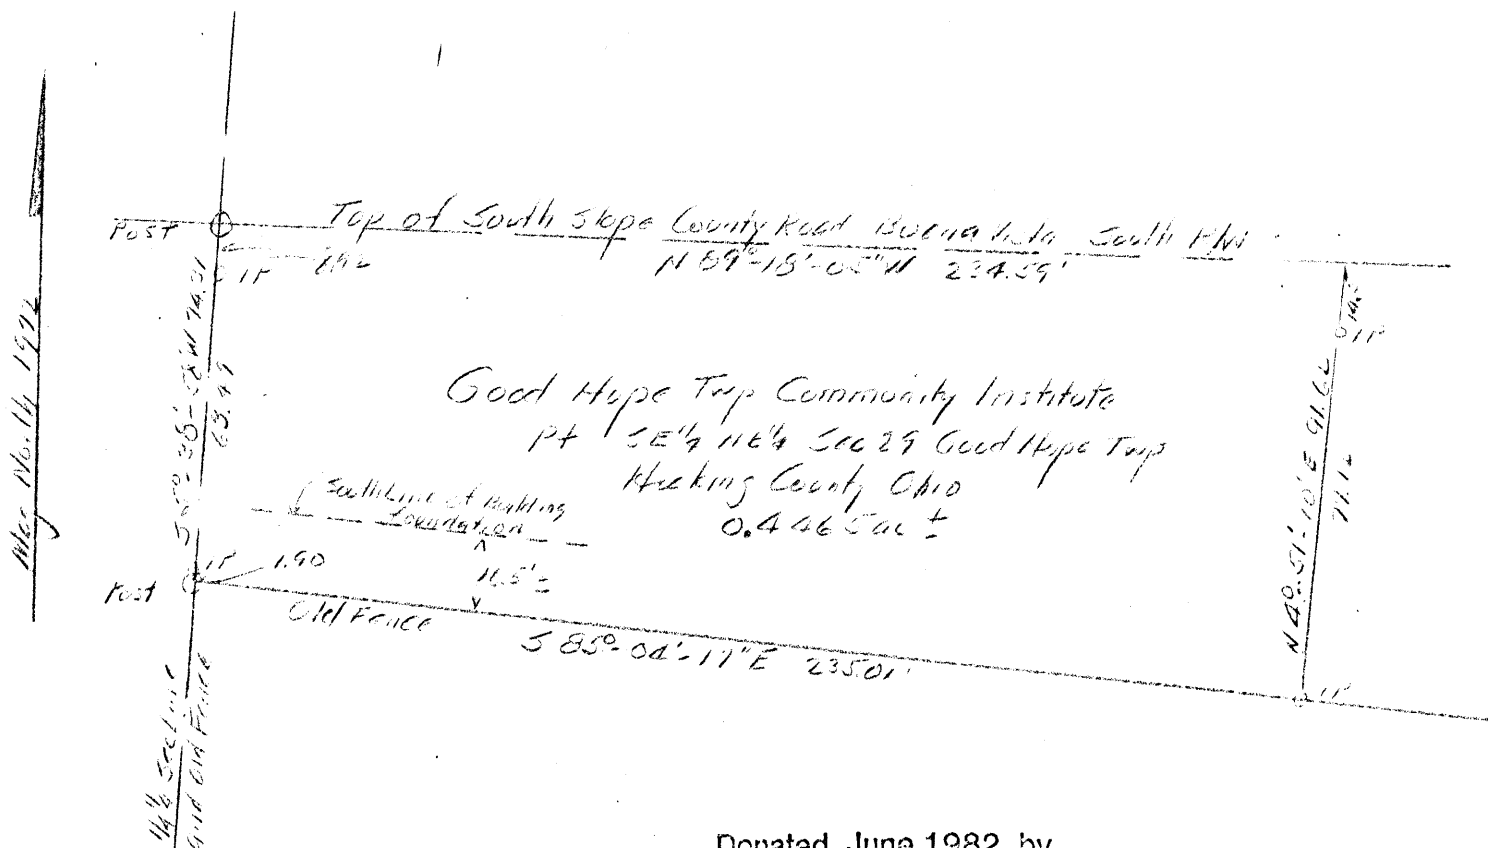 Mag North 1972
Post
Top of South Slope County Road Buena Vista South R/W
IP 7.92
N 89°-18'-05"W 234.59'
S 5°-38'-58"W 74.31
63.49
14.5
IP
Good Hope Twp Community Institute
Pt SE 1/4 NE 1/4 Sec 29 Good Hope Twp
Hocking County Ohio
0.4465 ac ±
South Line of Building
Foundation
16.5' ±
N 4°-51'-10"E 91.62
77.12
IP 1.90
Post
Old Fence
S 85°-04'-17"E 235.01'
IP
1/4 1/4 Sec Line
and Old Fence
Donated June 1982 by